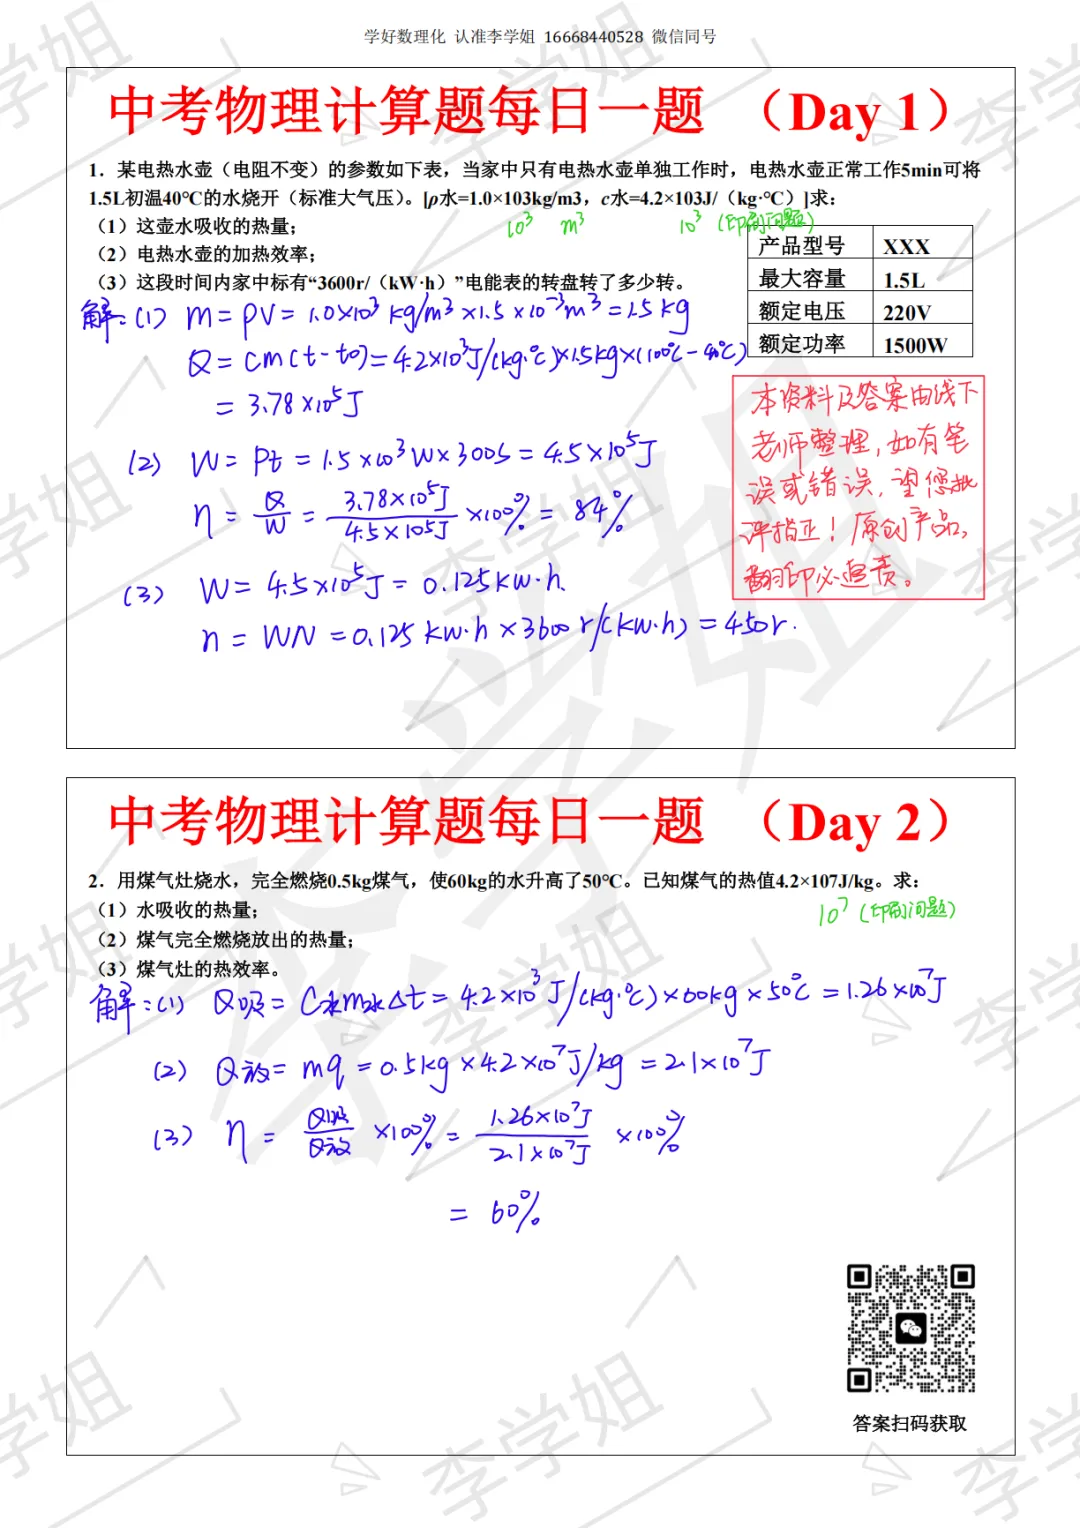 学好数理化 认准李学姐 16668440528 微信同号
中考物理计算题每日一题 （Day 1）
1．某电热水壶（电阻不变）的参数如下表，当家中只有电热水壶单独工作时，电热水壶正常工作5min可将
1.5L初温40℃的水烧开（标准大气压）。[ρ水=1.0×103kg/m3，c水=4.2×103J/（kg·℃）]求：
10³ m³ 10³（印刷问题）
（1）这壶水吸收的热量；
（2）电热水壶的加热效率；
（3）这段时间内家中标有“3600r/（kW·h）”电能表的转盘转了多少转。
产品型号 XXX
最大容量 1.5L
额定电压 220V
额定功率 1500W
解：(1) m=ρV=1.0×10³kg/m³×1.5×10⁻³m³=1.5kg
Q=cm(t-t0)=4.2×10³J/(kg·℃)×1.5kg×(100℃-40℃)
=3.78×10⁵J
(2) W=Pt=1.5×10³W×300s=4.5×10⁵J
η=Q/W=3.78×10⁵J/4.5×10⁵J×100%=84%
(3) W=4.5×10⁵J=0.125kW·h.
n=WN=0.125kW·h×3600r/(kW·h)=450r.
本资料及答案由线下
老师整理，如有笔
误或错误，望您批
评指正！原创产品，
翻印必追责。
中考物理计算题每日一题 （Day 2）
2．用煤气灶烧水，完全燃烧0.5kg煤气，使60kg的水升高了50℃。已知煤气的热值4.2×107J/kg。求：
10⁷（印刷问题）
（1）水吸收的热量；
（2）煤气完全燃烧放出的热量；
（3）煤气灶的热效率。
解：(1) Q吸=C水m水Δt=4.2×10³J/(kg·℃)×60kg×50℃=1.26×10⁷J
(2) Q放=mq=0.5kg×4.2×10⁷J/kg=2.1×10⁷J
(3) η=Q吸/Q放×100%=1.26×10⁷J/2.1×10⁷J×100%
=60%
答案扫码获取
李学姐